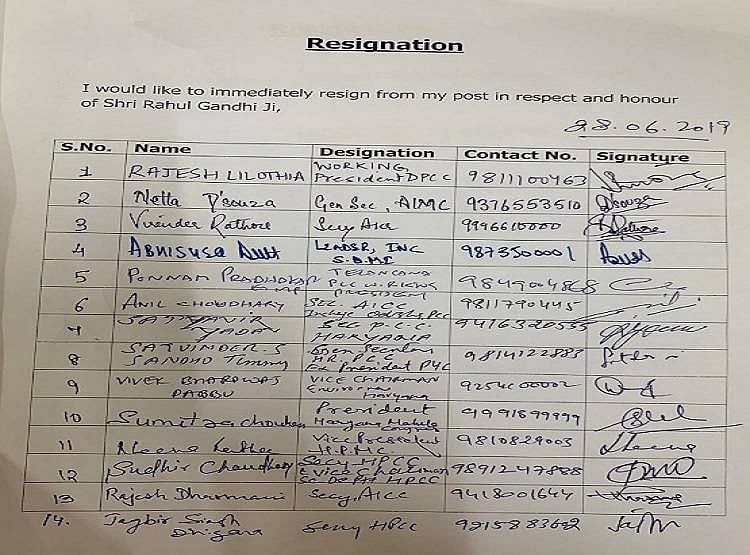 Resignation
I would like to immediately resign from my post in respect and honour
of Shri Rahul Gandhi Ji,
28.06.2019
S.No. Name Designation Contact No. Signature
1 RAJESH LILOTHIA WORKING President DPCC 9811100463
2 Netta D'souza Gen Sec, AIMC 9376553510 Dsouza
3 Virender Rathore Secy AICC 9996610000
4 Abhishek Dutt LEADER, INC 9873500001
5 PONNAM PRABHAKAR TELANGANA PCC WORKING PRESIDENT 9849004868
6 ANIL CHOUDHARY SEC. AICC Incharge Odisha PCC 9811790445
7 SATYAVIR YADAV SEC P.C.C. HARYANA 9416320555
8 SATVINDER. S SANDHU Timmy HR. PCC Ex President PYC 9814122883
9 VIVEK BHARDWAJ PABBU VICE CHAIRMAN Haryana 9254100002
10 Sumitra Chouhan President Haryana Mahila Congress 9991899999
11 Meena Vice President H.P.M.C. 9810829003 Meena
12 Sudhir Chaudhary Secy HPCC & Vice Chairman HPCC 9891247888
13 Rajesh Dharmani Secy, AICC 9418001644
14. Jagbir Singh Secy HPCC 9215883692